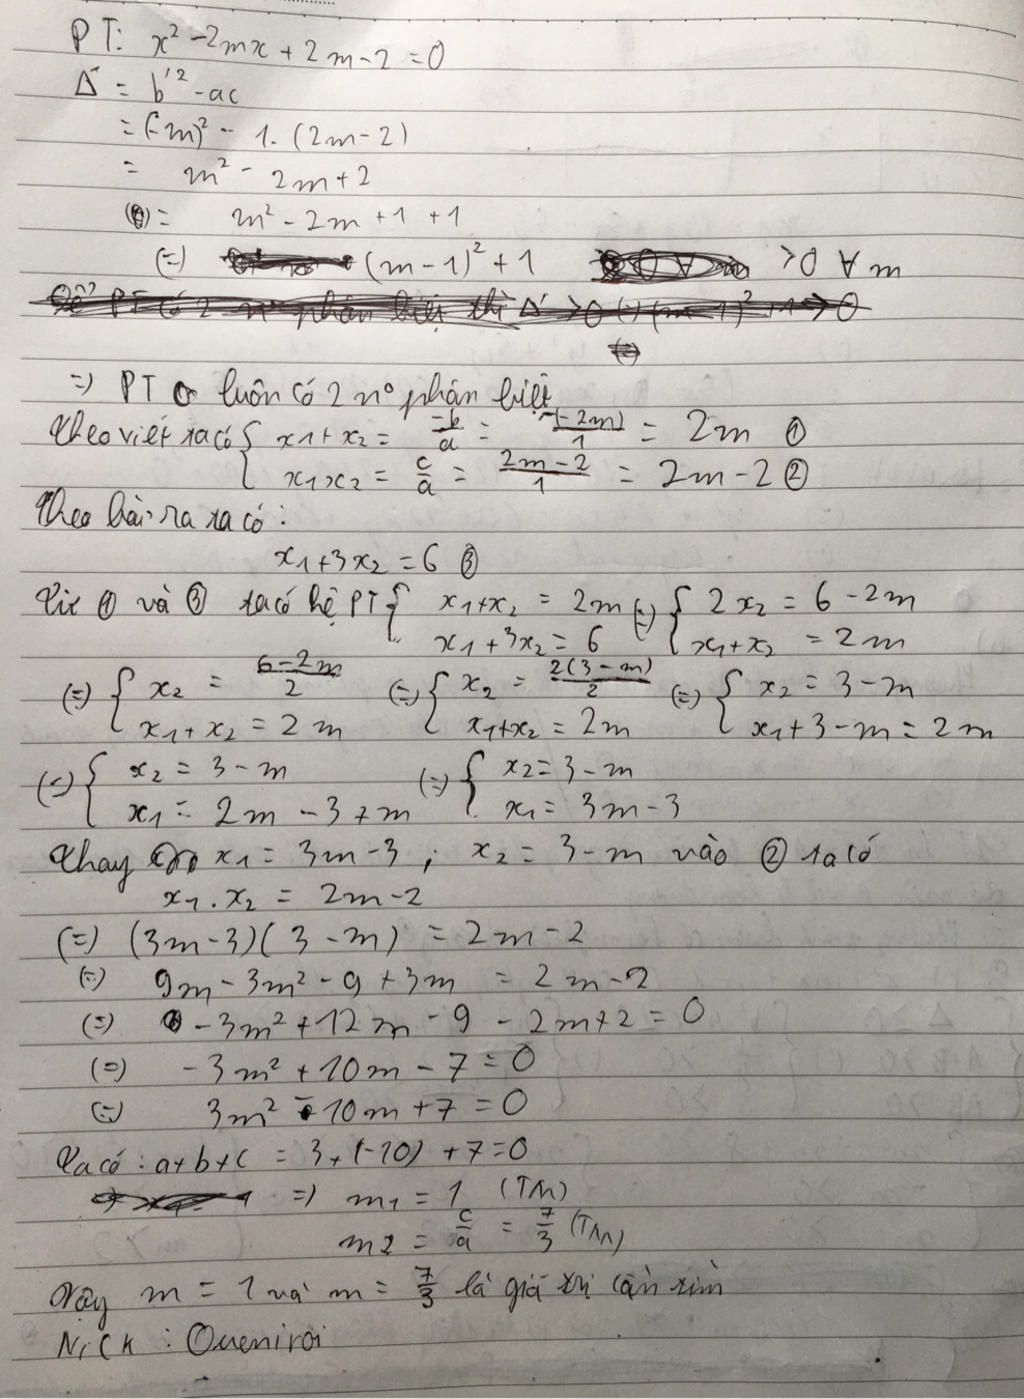 PT: x² - 2mx + 2m - 2 = 0
Δ' = b'² - ac
= (-m)² - 1. (2m - 2)
= m² - 2m + 2
= m² - 2m + 1 + 1
(=) (m - 1)² + 1 > 0 ∀ m
=> PT luôn có 2 n° phân biệt
Theo viét ta có { x1 + x2 = -b/a = -(-2m)/1 = 2m ①
x1x2 = c/a = 2m-2/1 = 2m - 2 ②
Theo bài ra ta có :
x1 + 3x2 = 6 ③
Từ ① và ③ ta có hệ PT { x1 + x2 = 2m (=) { 2x2 = 6 - 2m
x1 + 3x2 = 6 x1 + x2 = 2m
(=) { x2 = 6-2m/2 (=) { x2 = 2(3-m)/2 (=) { x2 = 3 - m
x1 + x2 = 2m x1 + x2 = 2m x1 + 3 - m = 2m
(=) { x2 = 3 - m (=) { x2 = 3 - m
x1 = 2m - 3 + m x1 = 3m - 3
Thay x1 = 3m - 3 ; x2 = 3 - m vào ② ta có
x1 . x2 = 2m - 2
(=) (3m - 3)( 3 - m) = 2m - 2
(=) 9m - 3m² - 9 + 3m = 2m - 2
(=) -3m² + 12m - 9 - 2m + 2 = 0
(=) -3m² + 10m - 7 = 0
(=) 3m² - 10m + 7 = 0
Ta có : a + b + c = 3 + (-10) + 7 = 0
=> m1 = 1 (TM)
m2 = c/a = 7/3 (TM)
Vậy m = 1 và m = 7/3 là giá trị cần tìm
Nick : Oueniroi